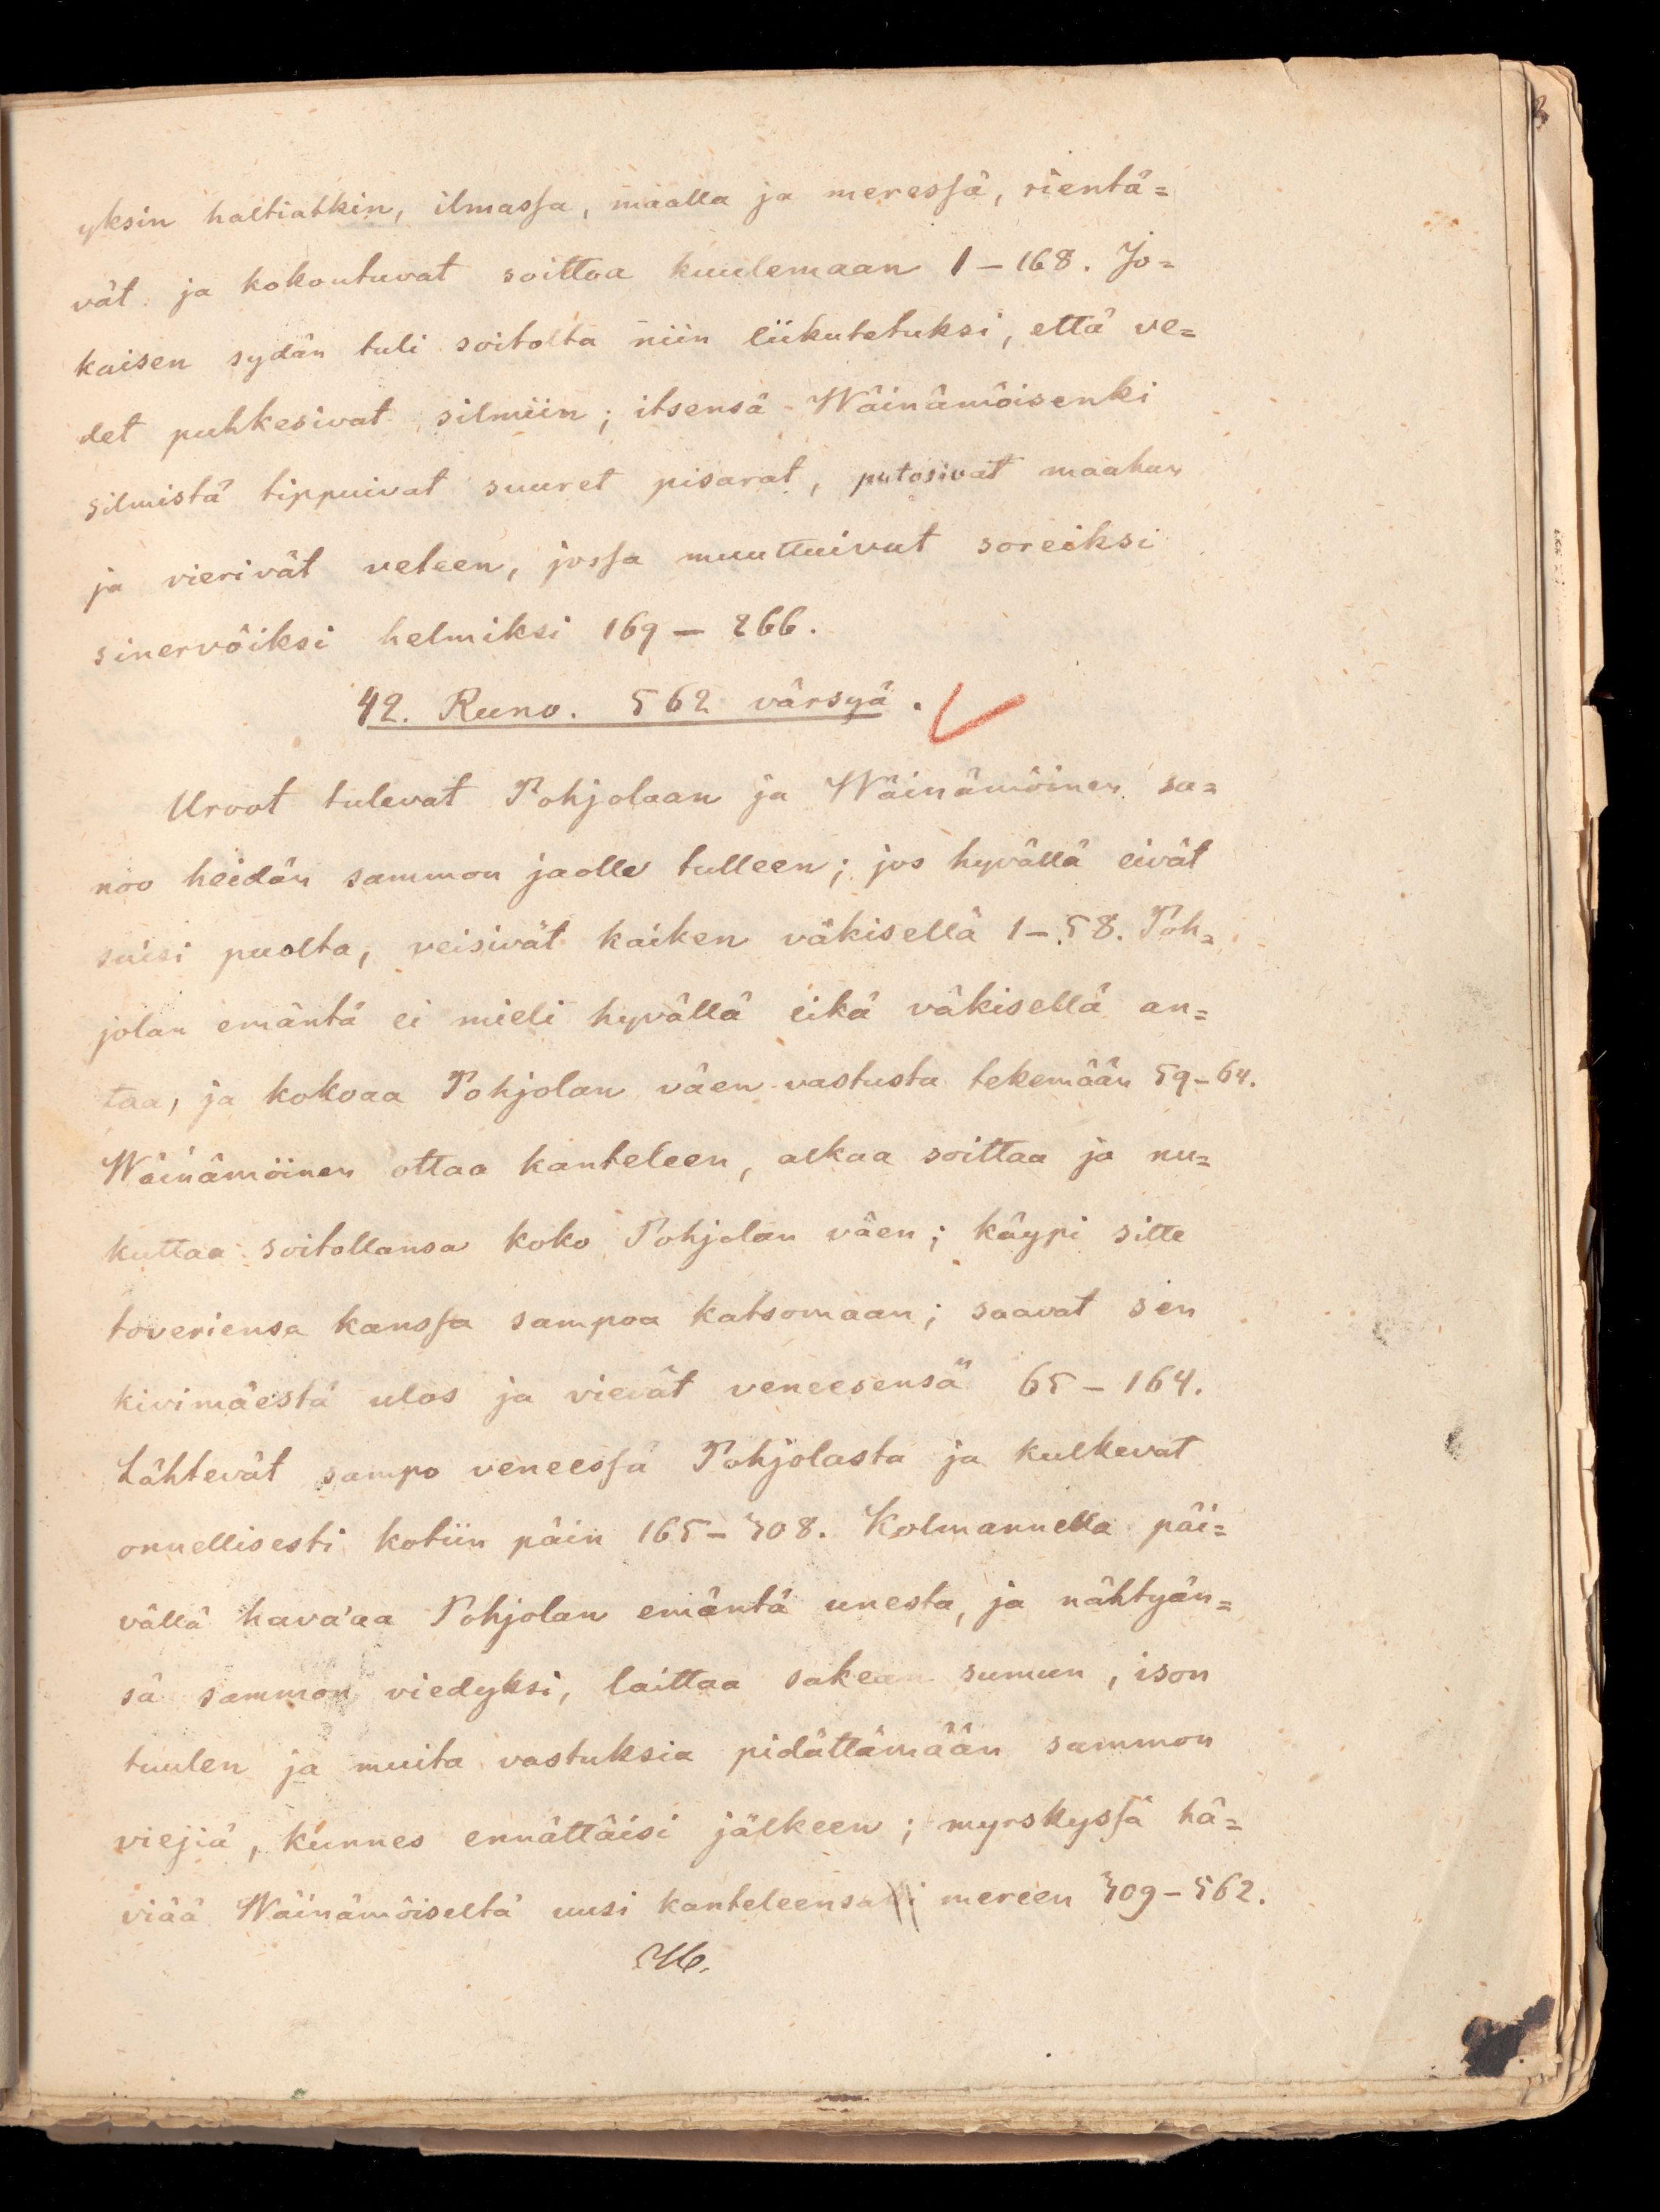 yksin haltiatkin, ilmassa, maalla ja meressä, rientä=
vät ja kokoutuvat soittoa kuulemaan 1–168. Jo=
kaisen sydän tuli soitolta niin liikutetuksi, että ve=
det puhkesivat silmiin; itsensä Wäinämöisenki
silmistä tippuivat suuret pisarat, putosivat maahan
ja vierivät veteen, jossa muuttuivat soreiksi
sinervöiksi helmiksi 169–266.
42. Runo. 562 värsyä.
Uroot tulevat Pohjolaan ja Wäinämöinen sa=
noo heidän sammon jaolle tulleen; jos hyvällä eivät
saisi puolta, veisivät kaiken väkisellä 1–58. Poh=
jolan emäntä ei mieli hyvällä eikä väkisellä an=
taa, ja kokoaa Pohjolan väen vastusta tekemään 59–64.
Wäinämöinen ottaa kanteleen, alkaa soittaa ja nu=
kuttaa soitollansa koko Pohjolan väen; käypi sitte
toveriensa kanssa sampoa katsomaan; saavat sen
kivimäestä ulos ja vievät veneesensä 65–164.
Lähtevät sampo veneessä Pohjolasta ja kulkevat
onnellisesti kotiin päin 165–308. Kolmannella päi=
vällä hava'aa Pohjolan emäntä unesta, ja nähtyän=
sä sammon viedyksi, laittaa sakean sumun, ison
tuulen ja muita vastuksia pidättämään sammon
viejiä, kunnes ennättäisi jälkeen; myrskyssä hä=
viää Wäinämöiseltä uusi kanteleensa mereen 309–562.